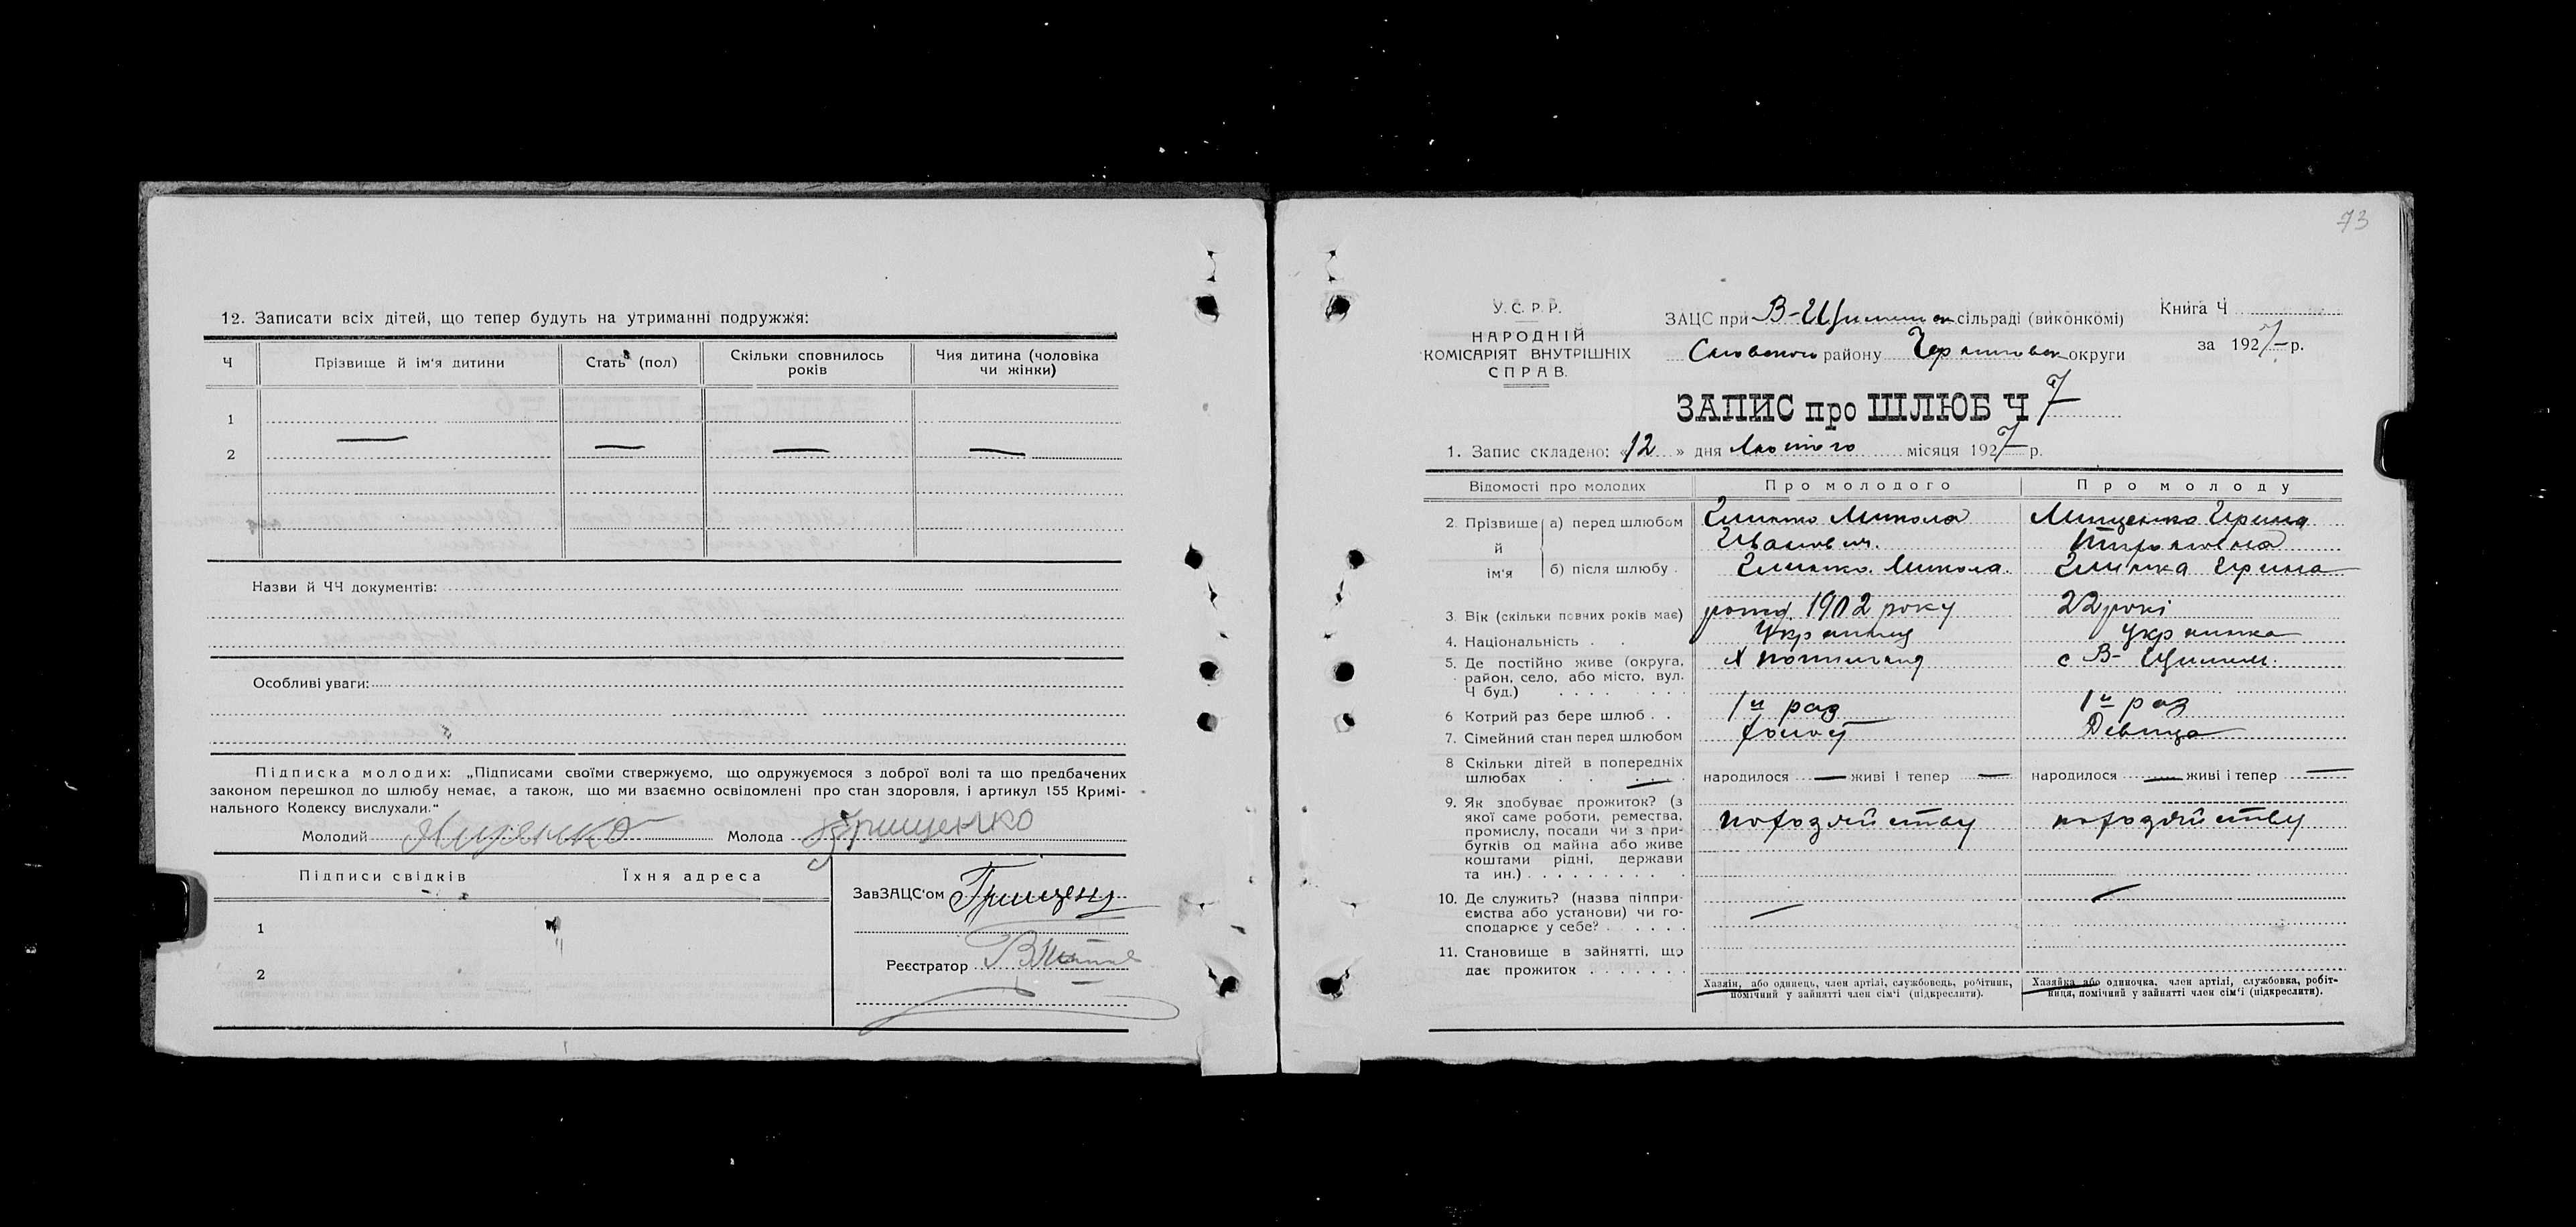 12. Записати всіх дітей, що тепер будуть на утриманні подружжя:
Ч
Прізвище й ім'я дитини
Стать (пол)
Скільки сповнилось
років
Чия дитина (чоловіка
чи жінки)
1
2
Назви й ЧЧ документів:
Особливі уваги:
Підписка молодих: „Підписами своїми стверджуємо, що одружуємося з доброї волі та що предбачених
законом перешкод до шлюбу немає, а також, що ми взаємно освідомлені про стан здоровля, і артикул 155 Кримі-
нального Кодексу вислухали."
Молодий
Молода
Підписи свідків
Їхня адреса
1
2
ЗавЗАЦС'ом
Реєстратор
73
У. С. Р. Р.
НАРОДНІЙ
КОМІСАРІЯТ ВНУТРІШНІХ
СПРАВ.
ЗАЦС при В- сільраді (виконкомі)
району округи
Книга Ч
за 1927 р.
ЗАПИС про ШЛЮБ Ч 7
1. Запис складено: «12» дня Лютого місяця 1927 р.
Відомості про молодих
Про молодого
Про молоду
2. Прізвище й ім'я
а) перед шлюбом
Микола
Іванович
Ирина
б) після шлюбу
Микола
Ирина
3. Вік (скільки повних років має)
1902 року
22 рокі
4. Національність
Українец
Українка
5. Де постійно живе (округа,
район, село, або місто, вул.
Ч буд.)
с В-
6 Котрий раз бере шлюб
1й раз
1й раз
7. Сімейний стан перед шлюбом
холост
Девица
8 Скільки дітей в попередніх
шлюбах
народилося — живі і тепер —
народилося — живі і тепер —
9. Як здобуває прожиток? (з
якої саме роботи, ремества,
промислу, посади чи з при-
бутків од майна або живе
коштами рідні, держави
та ин.)
похозяйству
похозяйству
10. Де служить? (назва піпри-
ємства або установи) чи го-
сподарює у себе?
11. Становище в зайнятті, що
дає прожиток
Хазяїн, або одинець, член артілі, службовець, робітник,
помічний у зайнятті член сім'ї (підкреслити).
Хазяйка або одиночка, член артілі, службовка, робіт-
ниця, помічний у зайнятті член сім'ї (підкреслити).